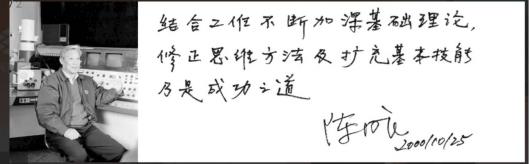 结合工作不断加深基础理论,
修正思维方法及扩充基本技能
乃是成功之道
2000/10/25